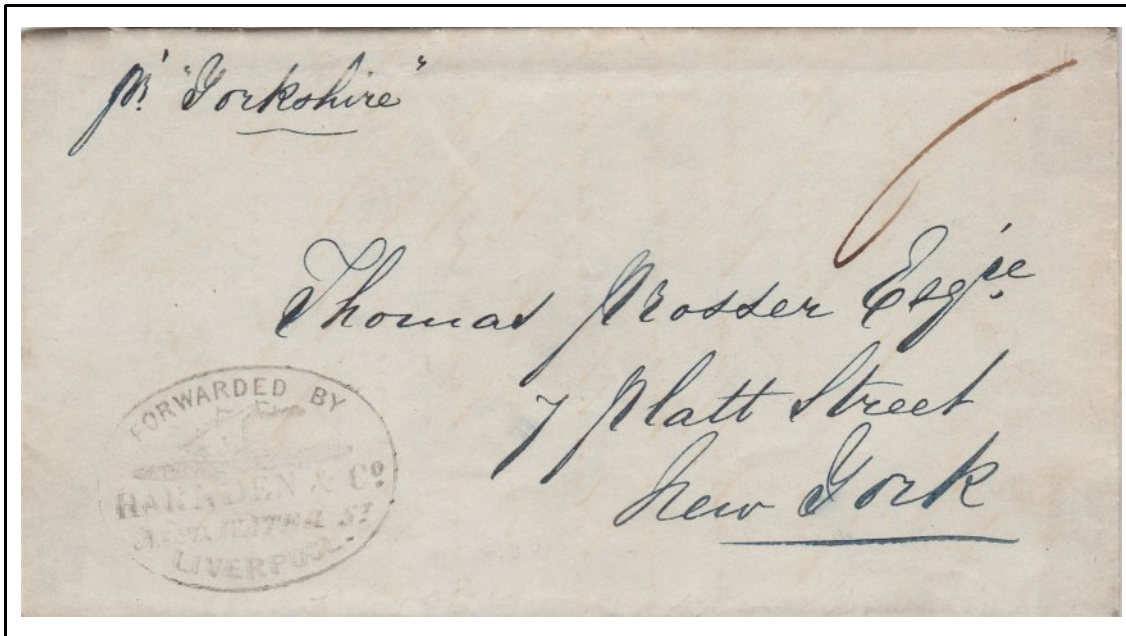 pr. "Yorkshire"
Thomas Prosser Esqre
7 Platt Street
New York
FORWARDED BY
HARNDEN & Co.
St
LIVERPOOL.